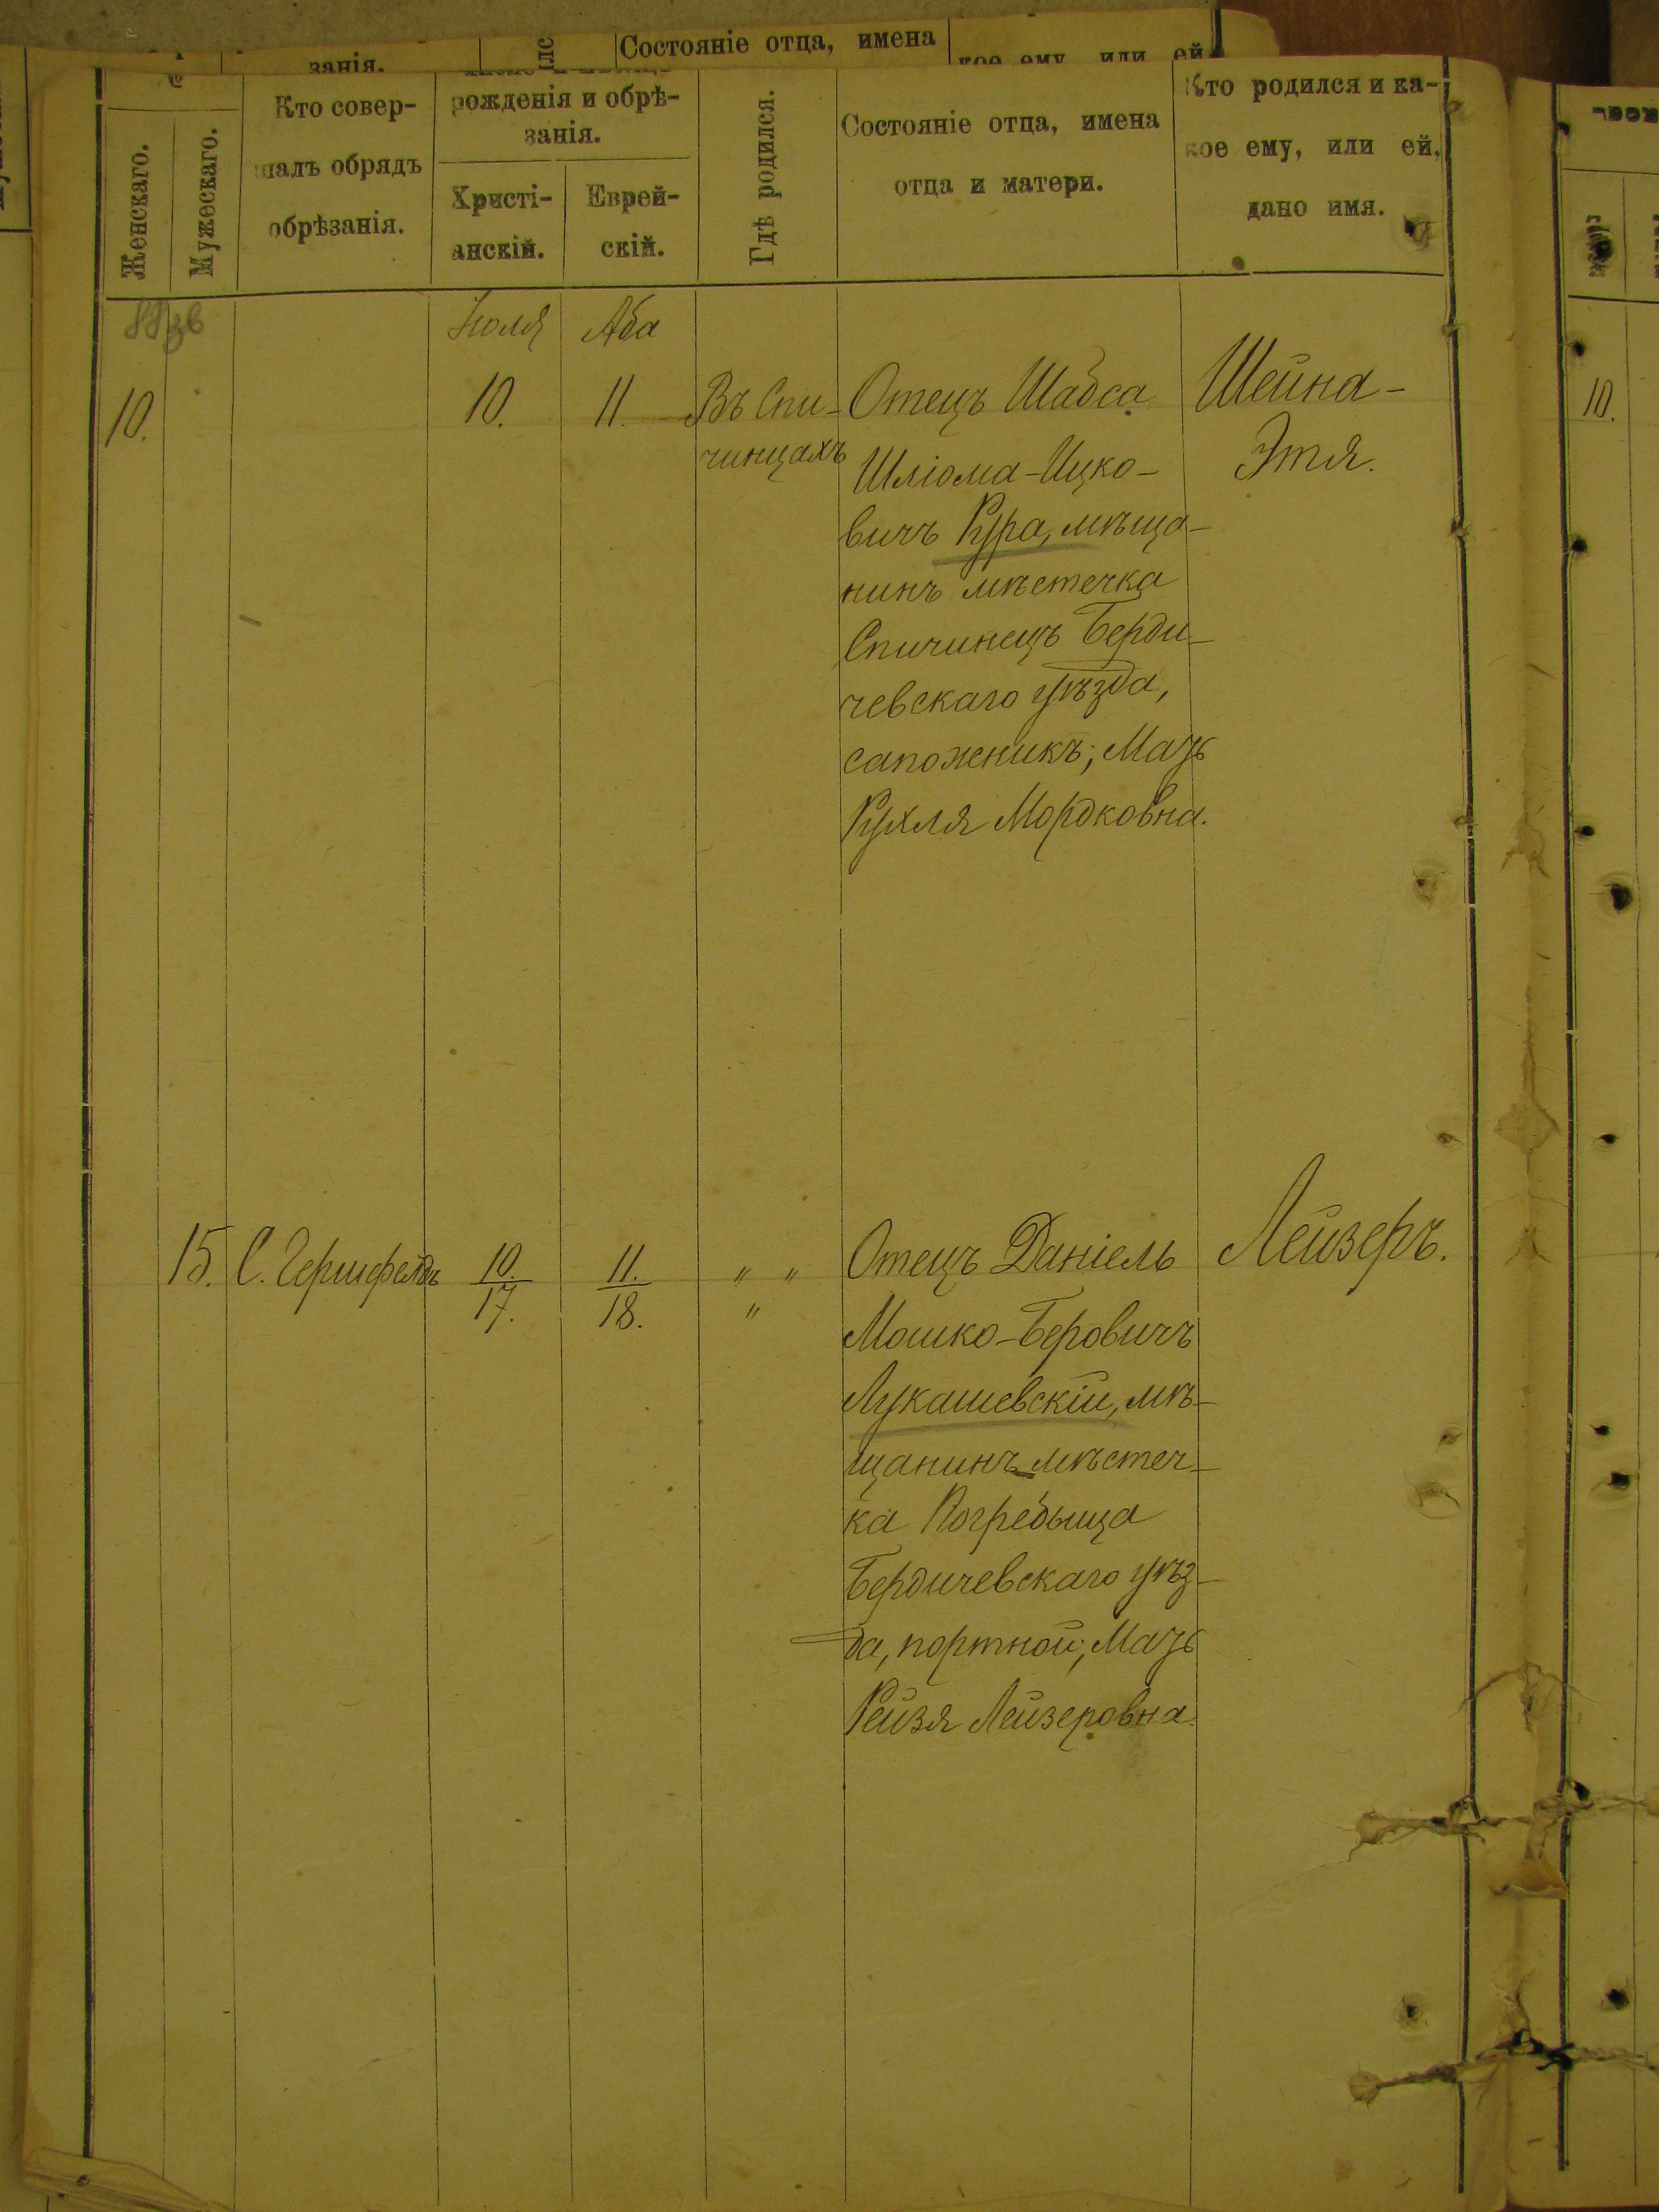 занія.
Состояніе отца, имена
Женскаго.
Мужескаго.
Кто совер-
шалъ обрядъ
обрѣзанія.
рожденія и обрѣ-
занія.
Христі-
анскій.
Еврей-
скій.
Гдѣ родился.
Состояніе отца, имена
отца и матери.
Кто родился и ка-
кое ему, или ей,
дано имя.
Іюля
Аба
10.
10.
11.
Въ Спи-
чинцахъ
Отецъ Шабса
Шліома-Ицко-
вичъ Кура, мѣща-
нинъ мѣстечка
Спичинецъ Берди-
чевскаго уѣзда,
сапожникъ; Мать
Рухля Мордковна.
Шейна-
Этя.
10.
15.
С. Гершфельдъ
10.
17.
11.
18.
" "
"
Отецъ Даніель
Мошко-Беровичъ
Лукашевскій, мѣ-
щанинъ мѣстеч-
ка Погребыща
Бердичевскаго уѣз-
да, портной; Мать
Рейзя Лейзеровна.
Лейзеръ.